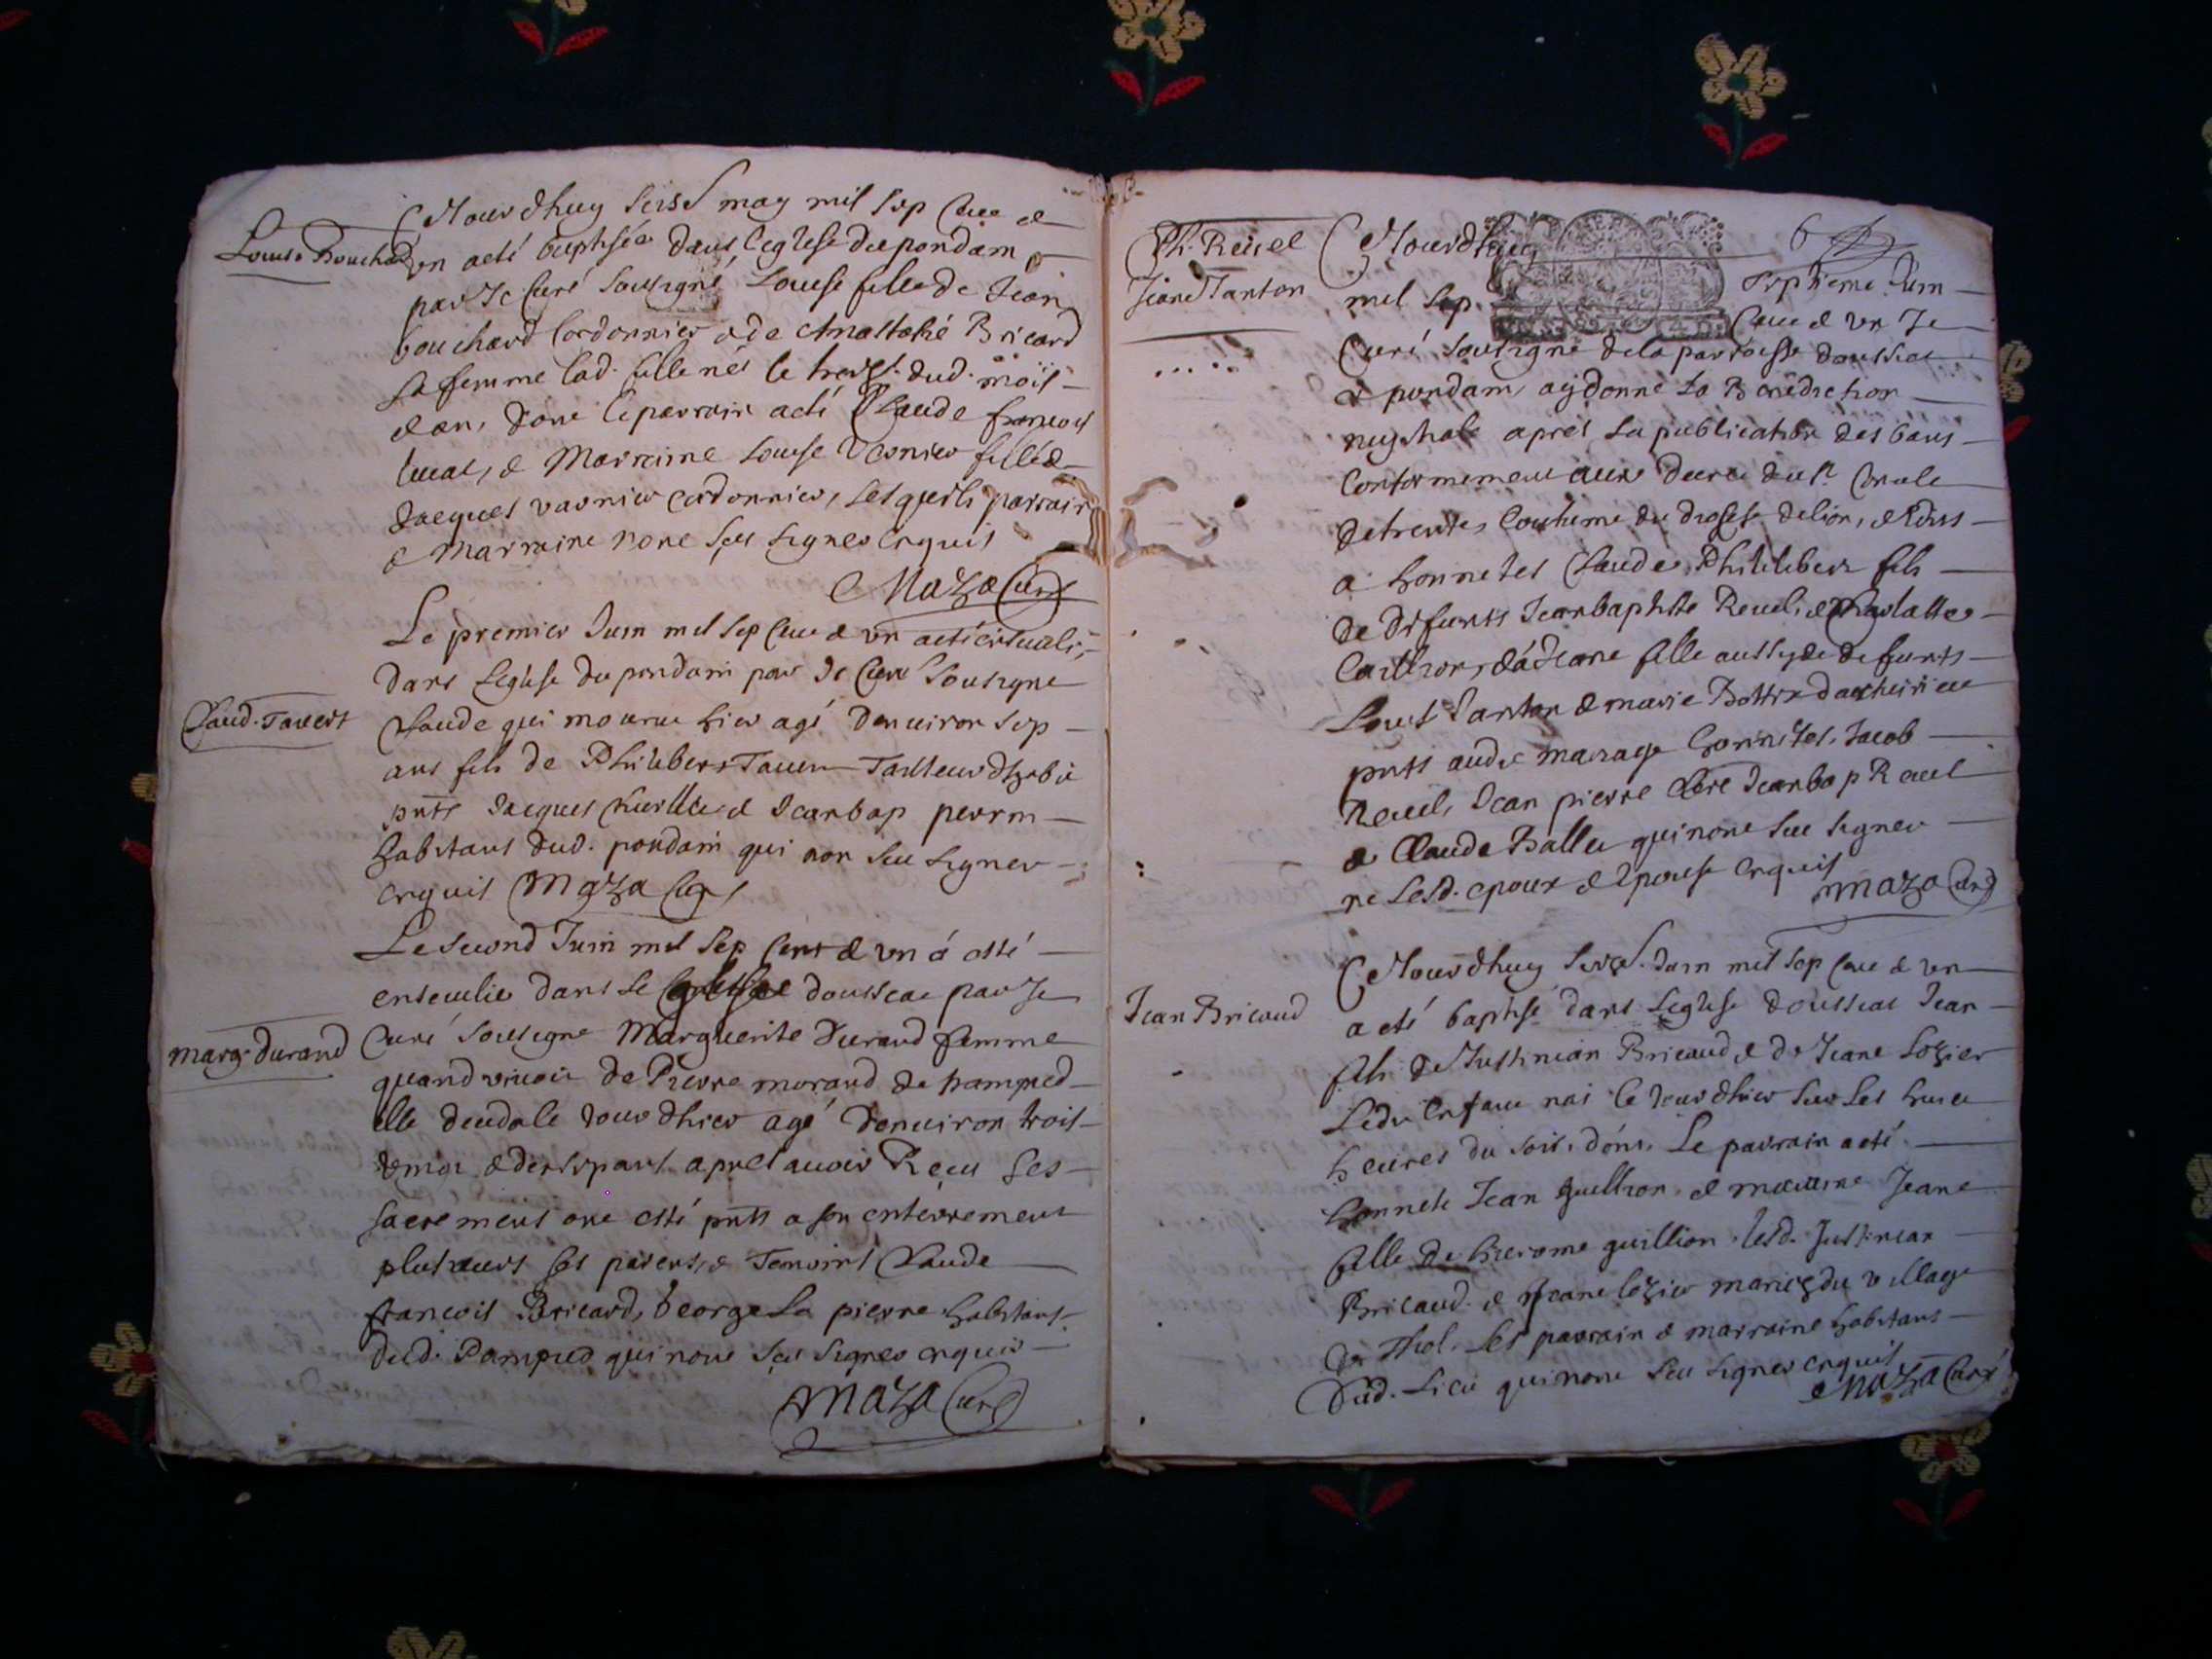 Cejourdhuy seise may mil sep cent et
Louise Bouchard
un a eté baptisée dans leglise du pondain
par Je curé soussigné Louise fille de Jean
bouchard Cordonnier et de Anastasie Bricard
sa femme lad. fille née le dud. mois
et an, dont le parrain a eté Claude francois
et Marraine Louise fille de
Jacques varnier cordonnier, lesquels parrain
et Marraine nont sceu signer enquis
Maza Curé
Le premier Juin mil sep cent et un a eté enseveli
dans Leglise du pondain par Je Curé soussigné
Claud. Tavert
Claude qui mourut hier agé denviron sep
ans fils de Philibert Taver Tailleur dhabit
pnts Jacques et Jeanbap perrin
habitans dud. pondain qui non sceu signer
enquis Maza Curé
Le second Juin mil sep cent et un á esté
ensevelie dans le doussiat par Je
marg. durand
Curé soussigné Marguerite Durand femme
quand vivoit de Pierre morand de pampied
elle décéda le jour dhier agé denviron trois
vingt et ans apres avoir Reçeu ses
sacremens ont esté pnts a son enterrement
plusieurs ses parens, et Temoins Claude
francois Bricard, George La pierre habitans
dud. Pampied qui nont sceu signer enquis
Maza Curé
6
Ph. Revel
Jeane Tanton
Cejourdhuy septieme Juin
mil sep cent et un Je
Curé soussigné de la paroisse doussiat
et pondain, ay donné la Benediction
nuptiale aprés la publication des bans
Conformement aux decre du st Concile
de trente, Coutume du diocese de lion,
a honnetes Claude Philibert fils
de defunts Jeanbaptiste Revel, et
et á Jeane fille aussy de defunts
Louis Tanton et marie
pnts audit mariage honnetes, Jacob
Revel, Jean pierre Jeanbap Revel
et Claude Ballet qui nont sceu signer
ne lesd. epoux et Epouse enquis
Maza Curé
Cejourdhuy Juin mil sep cent et un
Jean Bricaud
a eté baptisé dans Leglise doussiat Jean
fils de Justinian Bricaud, et de Jeane Lozier
Ledit Enfant nai le jour dhier sur les
heures du soir, dont Le parrain a eté
honnete Jean guillion, et maraine Jeane
fille de hierome guillion lesd. Justinian
Bricaud et Jeane lozier mariez du village
de Thol. Les parrain et marraine habitans
dud. Lieu qui nont sceu signer enquis
Maza Curé